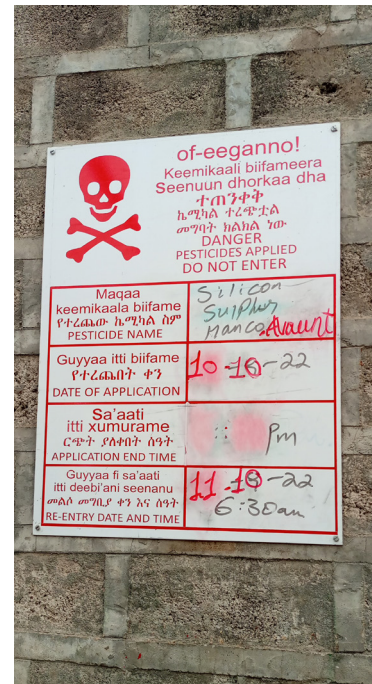 of-eeganno!
Keemikaali biifameera
Seenuun dhorkaa dha
ተጠንቀቅ
ኬሚካል ተረጭቷል
መግባት ክልክል ነው
DANGER
PESTICIDES APPLIED
DO NOT ENTER
Maqaa
keemikaala biifame
የተረጨው ኬሚካል ስም
PESTICIDE NAME
Silicon
Sulphur
Manco
Avaunt
Guyyaa itti biifame
የተረጨበት ቀን
DATE OF APPLICATION
10-10-22
Sa'aati
itti xumurame
ርጭት ያለቀበት ሰዓት
APPLICATION END TIME
: Pm
Guyyaa fi sa'aati
itti deebi'ani seenanu
መልሶ መግቢያ ቀን እና ሰዓት
RE-ENTRY DATE AND TIME
11.10-22
6:30am